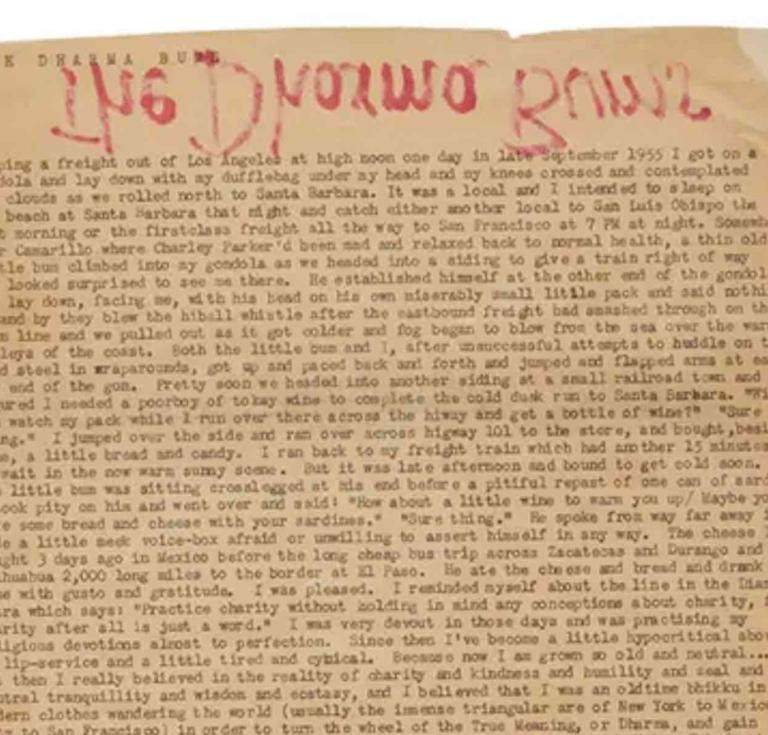 K DHARMA BUMS
The Dharma Bums
ping a freight out of Los Angeles at high noon one day in late September 1955 I got on a
dola and lay down with my dufflebag under my head and my knees crossed and contemplated
clouds as we rolled north to Santa Barbara. It was a local and I intended to sleep on
beach at Santa Barbara that night and catch either another local to San Luis Obispo the
t morning or the firstclass freight all the way to San Francisco at 7 PM at night. Somewh
r Camarillo where Charley Parker'd been mad and relaxed back to normal health, a thin old
tle bum climbed into my gondola as we headed into a siding to give a train right of way
looked surprised to see me there. He established himself at the other end of the gondol
lay down, facing me, with his head on his own miserably small little pack and said nothi
and by they blew the hiball whistle after the eastbound freight had smashed through on th
n line and we pulled out as it got colder and fog began to blow from the sea over the war
leys of the coast. Both the little bum and I, after unsuccessful attempts to huddle on t
d steel in wraparounds, got up and paced back and forth and jumped and flapped arms at ea
end of the gon. Pretty soon we headed into another siding at a small railroad town and
ured I needed a poorboy of tokay wine to complete the cold dusk run to Santa Barbara. "Wi
watch my pack while I run over there across the hiway and get a bottle of wine?" "Sure
ng." I jumped over the side and ran over across higway 101 to the store, and bought,besi
e, a little bread and candy. I ran back to my freight train which had another 15 minutes
wait in the now warm sunny scene. But it was late afternoon and bound to get cold soon.
little bum was sitting crosslegged at his end before a pitiful repast of one can of sard
ook pity on him and went over and said: "How about a little wine to warm you up/ Maybe yo
e some bread and cheese with your sardines." "Sure thing." He spoke from way far away i
e a little meek voice-box afraid or unwilling to assert himself in any way. The cheese I
ght 3 days ago in Mexico before the long cheap bus trip across Zacatecas and Durango and
huahua 2,000 long miles to the border at El Paso. He ate the cheese and bread and drank
e with gusto and gratitude. I was pleased. I reminded myself about the line in the Diam
ra which says: "Practice charity without holding in mind any conceptions about charity, f
rity after all is just a word." I was very devout in those days and was practising my
ligious devotions almost to perfection. Since then I've become a little hypocritical abou
lip-service and a little tired and cybical. Because now I am grown so old and neutral...
then I really believed in the reality of charity and kindness and humility and zeal and
utral tranquillity and wisdom and ecstasy, and I believed that I was an oldtime bhikku in
dern clothes wandering the world (usually the immense triangular arc of New York to Mexico
ty to San Francisco) in order to turn the wheel of the True Meaning, or Dharma, and gain